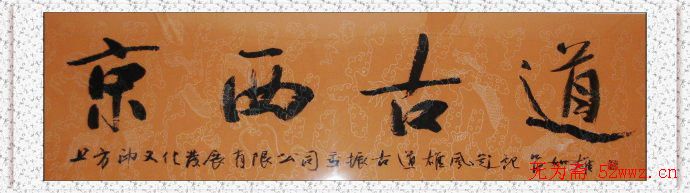 京西古道
上方润文化发展有限公司重振古道雄风留記
无为斋 52wwz.cn